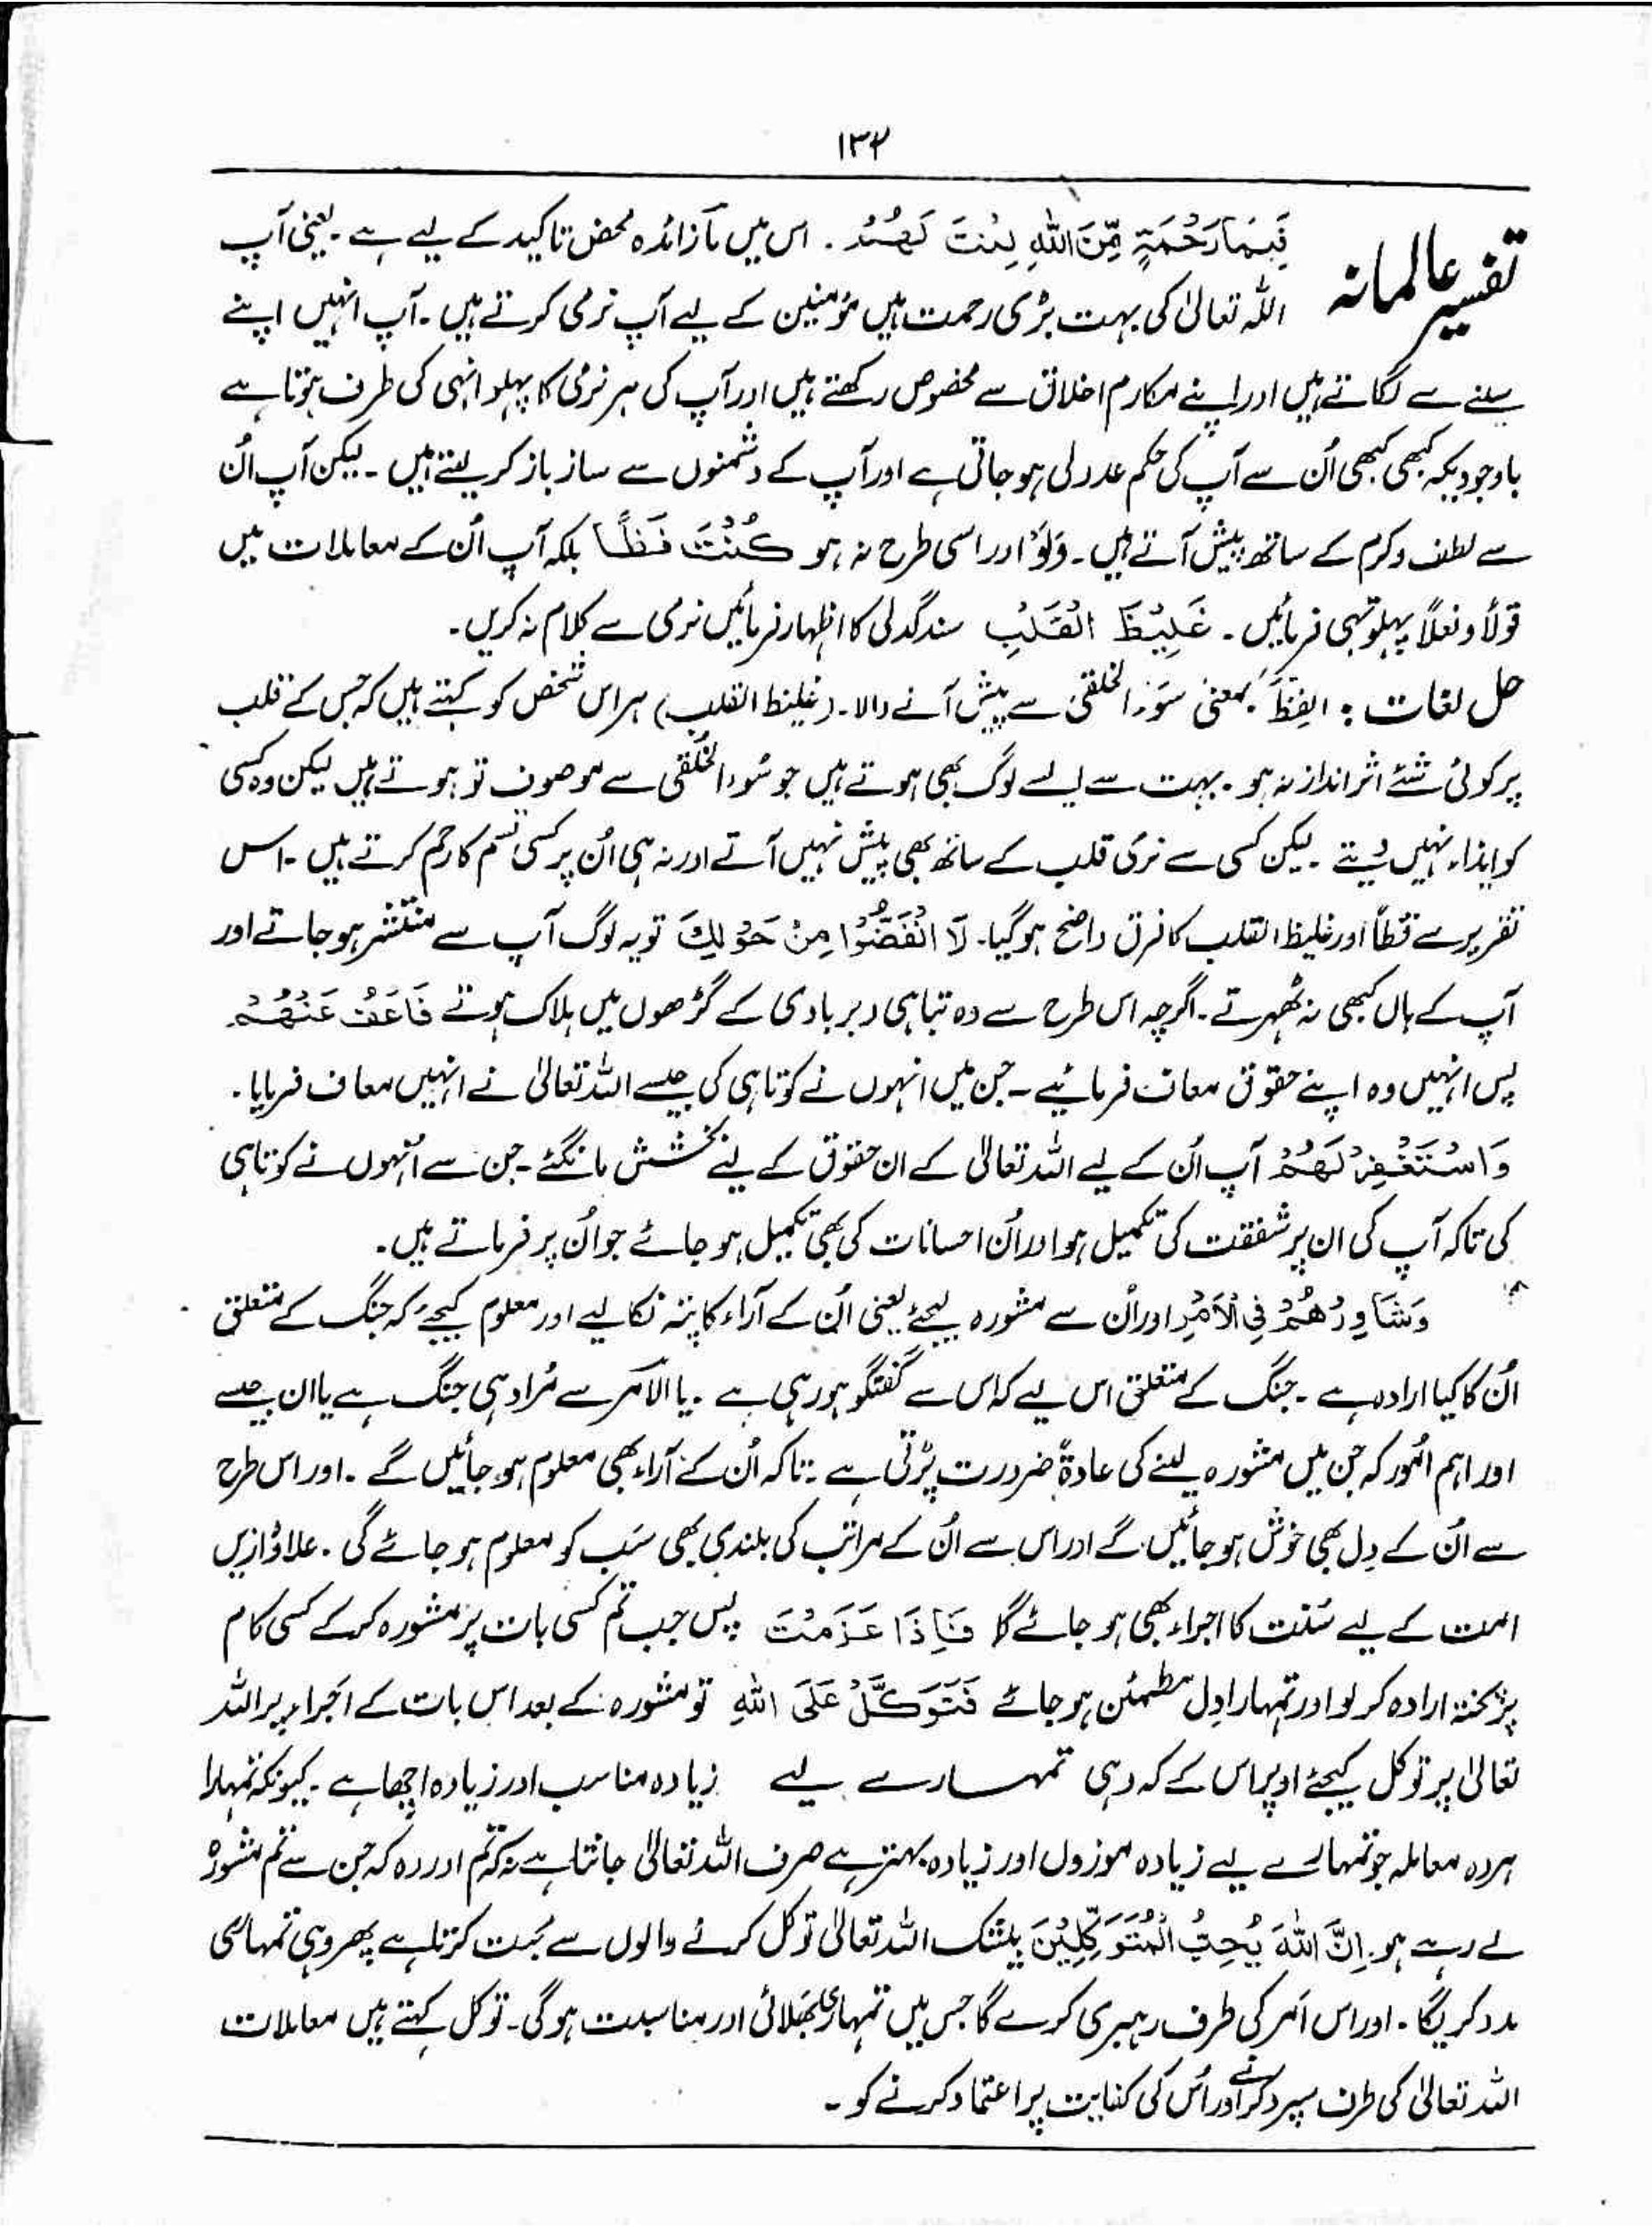 ۱۳۲
تفسیر عالمانہ
فَبِمَا رَحْمَۃٍ مِّنَ اللّٰہِ لِنْتَ لَھُمْ ۔ اس میں مَا زائدہ محض تاکید کے لیے ہے ۔ یعنی آپ
اللہ تعالیٰ کی بہت بڑی رحمت ہیں مؤمنین کے لیے آپ نرمی کرتے ہیں ۔ آپ انہیں اپنے
سینے سے لگاتے ہیں اور اپنے مکارم اخلاق سے مخصوص رکھتے ہیں اور آپ کی ہر نرمی کا پہلو انہی کی طرف ہوتا ہے
باوجودیکہ کبھی کبھی اُن سے آپ کی حکم عدولی ہو جاتی ہے اور آپ کے دشمنوں سے ساز باز کر لیتے ہیں ۔ لیکن آپ اُن
سے لطف و کرم کے ساتھ پیش آتے ہیں ۔ وَلَوْ اور اسی طرح نہ ہو کُنْتَ فَظًّا بلکہ آپ اُن کے معاملات میں
قولاً و فعلاً پہلوتہی فرمائیں ۔ غَلِیْظَ الْقَلْبِ سنگدلی کا اظہار فرمائیں نرمی سے کلام نہ کریں ۔
حل لغات : الفِظَّ بمعنی سوء الخلقی سے پیش آنے والا ۔ (غلیظ القلب) ہر اس شخص کو کہتے ہیں کہ جس کے قلب
پر کوئی شئے اثر انداز نہ ہو ۔ بہت سے ایسے لوگ بھی ہوتے ہیں جو سُوء الخُلقی سے موصوف تو ہوتے ہیں لیکن وہ کسی
کو ایذاء نہیں دیتے ۔ لیکن کسی سے نرمی قلب کے ساتھ بھی پیش نہیں آتے اور نہ ہی اُن پر کسی قسم کا رحم کرتے ہیں ۔ اس
تقریر سے فظاً اور غلیظ القلب کا فرق واضح ہو گیا ۔ لَا انْفَضُّوْا مِنْ حَوْلِکَ تو یہ لوگ آپ سے منتشر ہو جاتے اور
آپ کے ہاں کبھی نہ ٹھہرتے ۔ اگرچہ اس طرح سے وہ تباہی و بربادی کے گڑھوں میں ہلاک ہوتے فَاعْفُ عَنْھُمْ
پس انہیں وہ اپنے حقوق معاف فرمائیے ۔ جن میں انہوں نے کوتاہی کی جیسے اللہ تعالیٰ نے انہیں معاف فرمایا ۔
وَاسْتَغْفِرْ لَھُمْ آپ اُن کے لیے اللہ تعالیٰ کے ان حقوق کے لیے بخشش مانگئے ۔ جن سے اُنہوں نے کوتاہی
کی تاکہ آپ کی ان پر شفقت کی تکمیل ہو اور اُن احسانات کی بھی تکمیل ہو جائے جو اُن پر فرماتے ہیں ۔
وَشَاوِرْھُمْ فِی الْاَمْرِ اور اُن سے مشورہ لیجئے یعنی اُن کے آراء کا پتہ نکالیے اور معلوم کیجئے کہ جنگ کے متعلق
اُن کا کیا ارادہ ہے ۔ جنگ کے متعلق اس لیے کہ اس سے گفتگو ہو رہی ہے ۔ یا الامر سے مُراد ہی جنگ ہے یا ان جیسے
اور اہم اُمور کہ جن میں مشورہ لینے کی عادۃً ضرورت پڑتی ہے : تاکہ اُن کے آراء بھی معلوم ہو جائیں گے ۔ اور اس طرح
سے اُن کے دِل بھی خوش ہو جائیں گے اور اس سے اُن کے مراتب کی بلندی بھی سَب کو معلوم ہو جائے گی ۔ علاوہ ازیں
امت کے لیے سُنّت کا اجراء بھی ہو جائے گا فَاِذَا عَزَمْتَ پس جب تم کسی بات پر مشورہ کر کے کسی کام
پر پختہ ارادہ کر لو اور تمہارا دِل مطمئن ہو جائے فَتَوَکَّلْ عَلَی اللّٰہِ تو مشورہ کے بعد اس بات کے اجراء پر اللہ
تعالیٰ پر توکل کیجئے اوپر اس کے کہ وہی تمہارے لیے زیادہ مناسب اور زیادہ اچھا ہے ۔ کیونکہ تمہارا
ہر وہ معاملہ جو تمہارے لیے زیادہ موزوں اور زیادہ بہتر ہے صرف اللہ تعالیٰ جانتا ہے نہ کہ تم اور وہ کہ جن سے تم مشورہ
لے رہے ہو ۔ اِنَّ اللّٰہَ یُحِبُّ الْمُتَوَکِّلِیْنَ بیشک اللہ تعالیٰ توکل کرنے والوں سے محبت کرتا ہے پھر وہی تمہاری
مدد کریگا ۔ اور اس اَمر کی طرف رہبری کرے گا جس میں تمہاری بھَلائی اور مناسبت ہو گی ۔ توکل کہتے ہیں معاملات
اللہ تعالیٰ کی طرف سپرد کرنے اور اُس کی کفایت پر اعتماد کرنے کو ۔